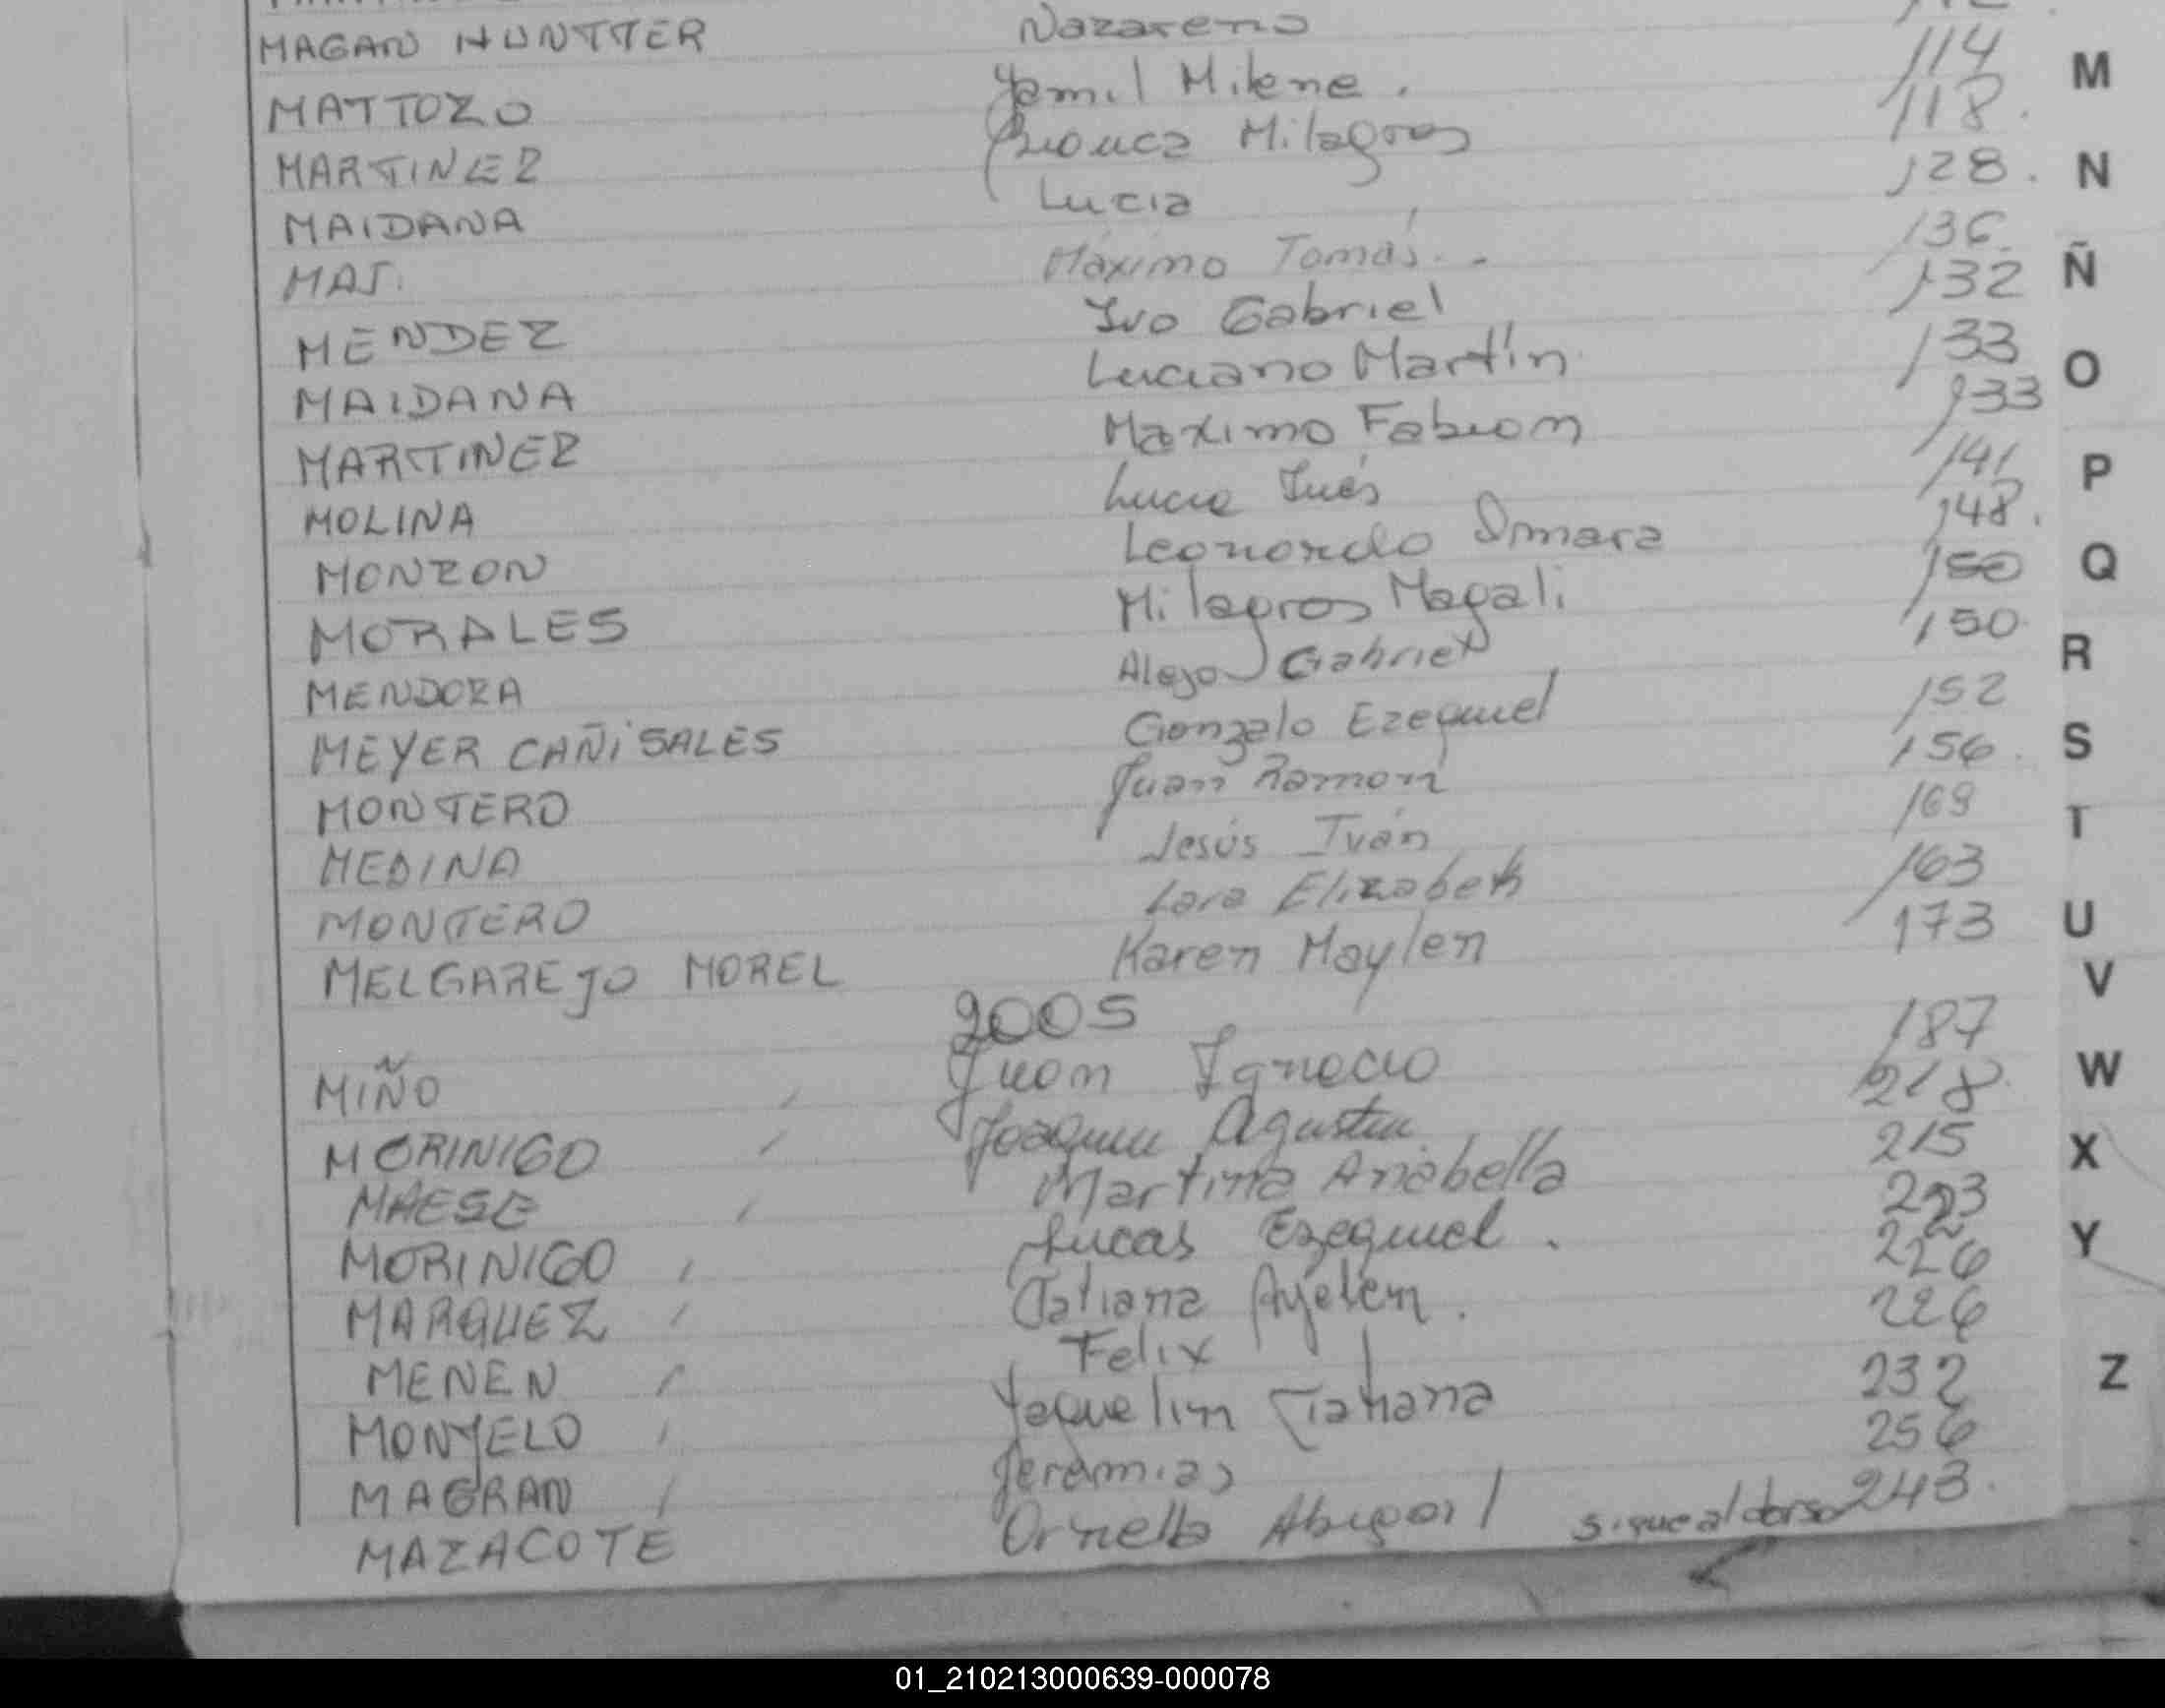 MAGAN HUNTTER Nazareno 112.
MATTOZO Yamil Milene. 114
MARTINEZ Bianca Milagros 118.
MAIDANA Lucia 128.
MAS. Máximo Tomás. 136.
MENDEZ Ivo Gabriel 132
MAIDANA Luciano Martín 133
MARTINEZ Maximo Fabian 133
MOLINA Lucia Inés 141
MONZON Leonardo 148.
MORALES Milagros Magali 150
MENDOZA Alejo Gabriel 150
MEYER CAÑiSALES Gonzalo Ezequiel 152
MONTERO Juan Ramón 156.
MEDINA Jesús Iván 169
MONTERO Lara Elizabeth 163
MELGAREJO MOREL Karen Maylen 173
2005
MIÑO Juan Ignacio 187
MORINIGO Joaquin Agustin 218.
MAESE Martina Anabella 215
MORINIGO Lucas Ezequiel. 223
MARQUEZ Tatiana Ayelen. 226
MENEN Felix 226
MONYELO Yaquelin Tatiana 232
MAGRAN Jeremias 256
MAZACOTE Ornella Abigail sigue al dorso 243.
M
N
Ñ
O
P
Q
R
S
T
U
V
W
X
Y
Z
01_210213000639-000078